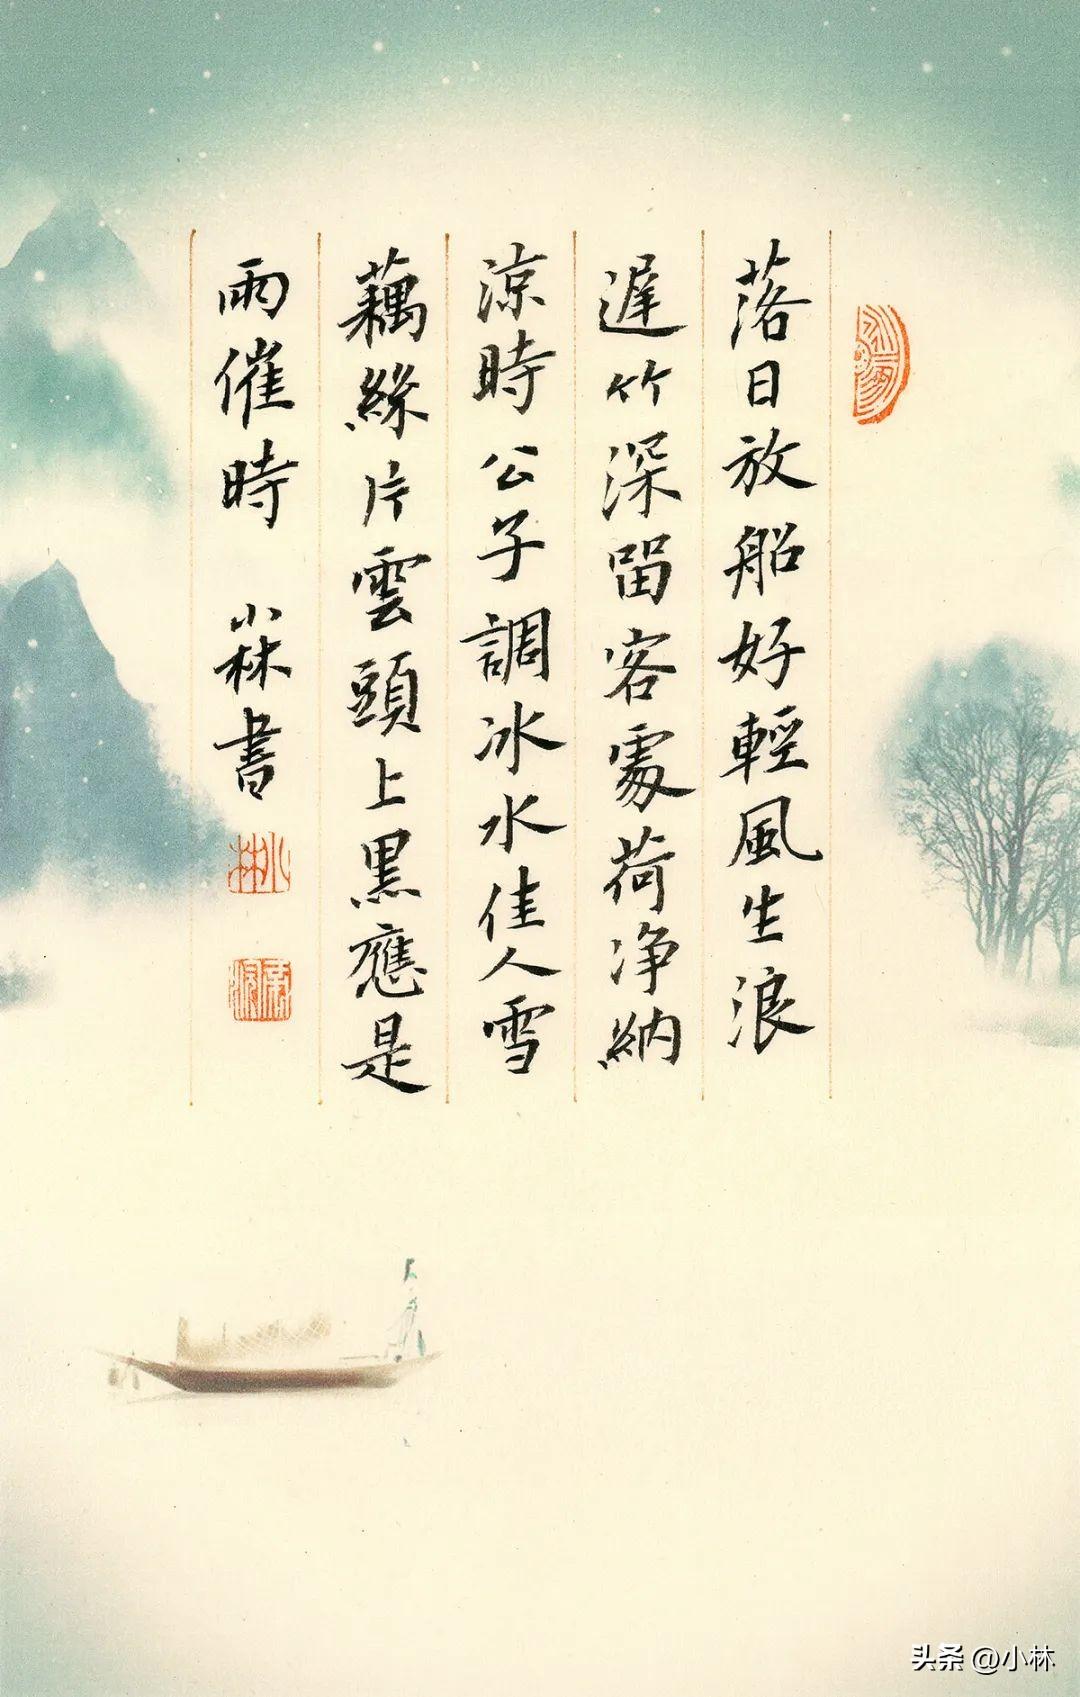 落日放船好輕風生浪
遲竹深留客處荷净納
涼時公子調冰水佳人雪
藕絲片雲頭上黑應是
雨催時 小林書
小林
头条 @小林